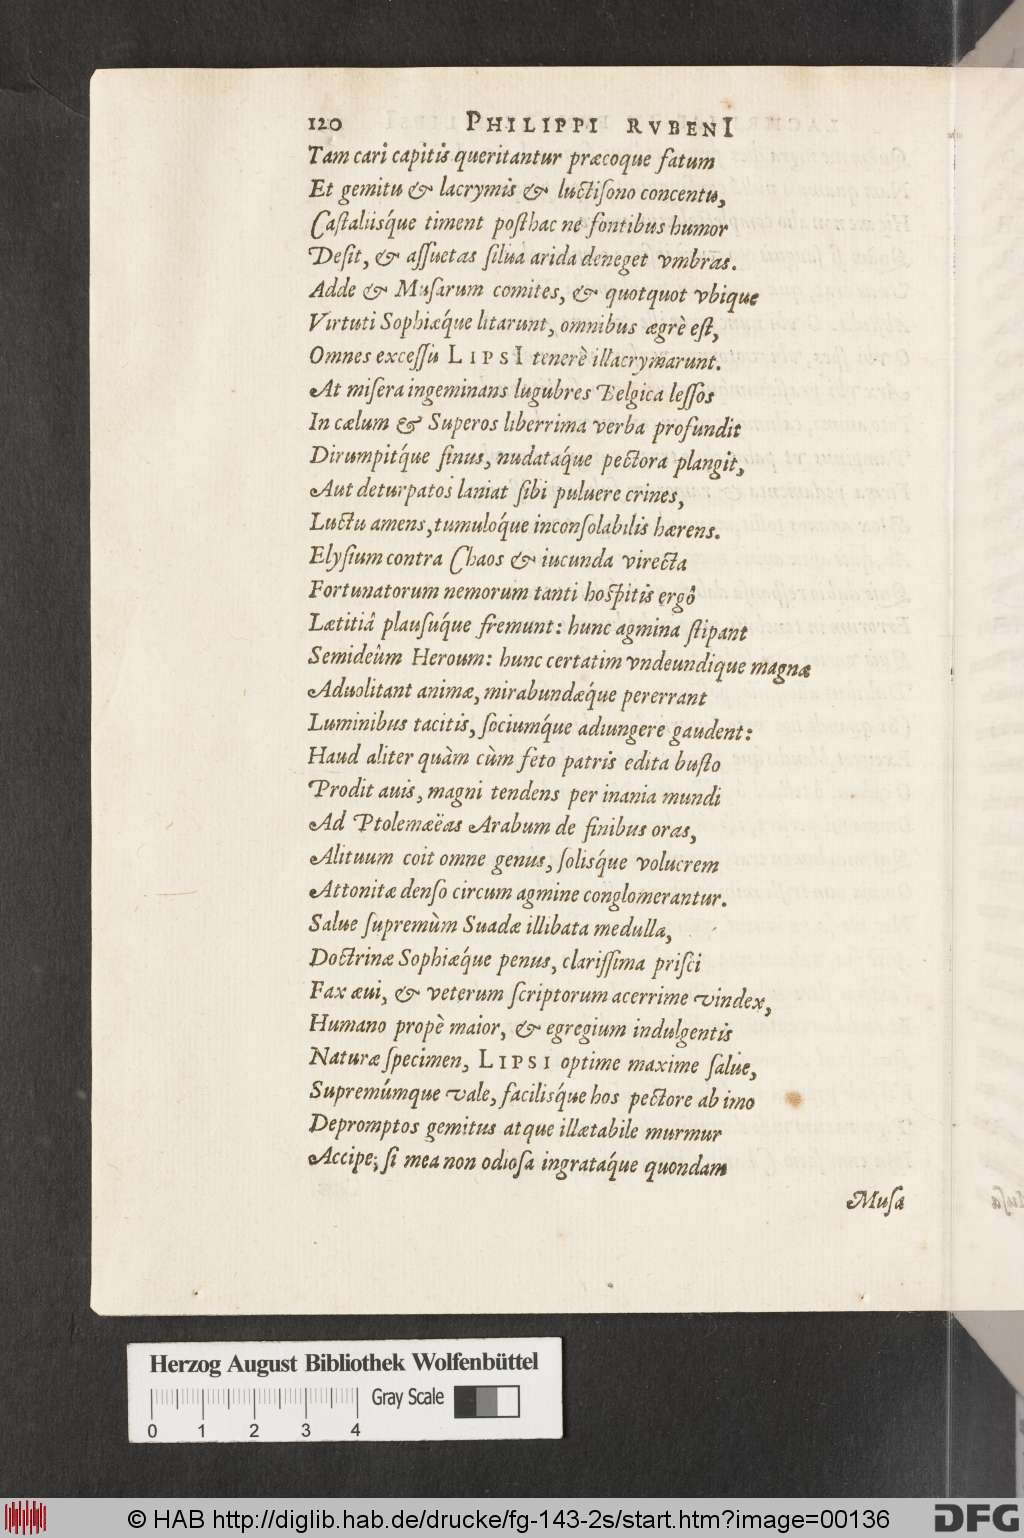 120 PHILIPPI RVBENI
Tam cari capitis queritantur præcoque fatum
Et gemitu & lacrymis & luctiſono concentu,
Caſtaliiſq́ue timent poſthac ne fontibus humor
Deſit, & aſſuetas ſilua arida deneget vmbras.
Adde & Muſarum comites, & quotquot vbique
Virtuti Sophiæq́ue litarunt, omnibus ægrè eſt,
Omnes exceſſu LIPSI tenerè illacrymarunt.
At miſera ingeminans lugubres Belgica leſſos
In cælum & Superos liberrima verba profundit
Dirumpitq́ue ſinus, nudataq́ue pectora plangit,
Aut deturpatos laniat ſibi puluere crines,
Luctu amens, tumuloq́ue inconſolabilis hærens.
Elyſium contra Chaos & iucunda virecta
Fortunatorum nemorum tanti hoſpitis ergô
Lætitiâ plauſuq́ue fremunt: hunc agmina ſtipant
Semideûm Heroum: hunc certatim vndeundique magnæ
Aduolitant animæ, mirabundæq́ue pererrant
Luminibus tacitis, ſociumq́ue adiungere gaudent:
Haud aliter quàm cùm feto patris edita buſto
Prodit auis, magni tendens per inania mundi
Ad Ptolemæëas Arabum de finibus oras,
Alituum coit omne genus, ſolisq́ue volucrem
Attonitæ denſo circum agmine conglomerantur.
Salue ſupremùm Suadæ illibata medulla,
Doctrinæ Sophiæq́ue penus, clariſſima priſci
Fax æui, & veterum ſcriptorum acerrime vindex,
Humano propè maior, & egregium indulgentis
Naturæ ſpecimen, LIPSI optime maxime ſalue,
Supremúmque vale, facilisq́ue hos pectore ab imo
Depromptos gemitus atque illætabile murmur
Accipe; ſi mea non odioſa ingrataq́ue quondam
Muſa
Herzog August Bibliothek Wolfenbüttel
Gray Scale
0 1 2 3 4
© HAB http://diglib.hab.de/drucke/fg-143-2s/start.htm?image=00136
DFG